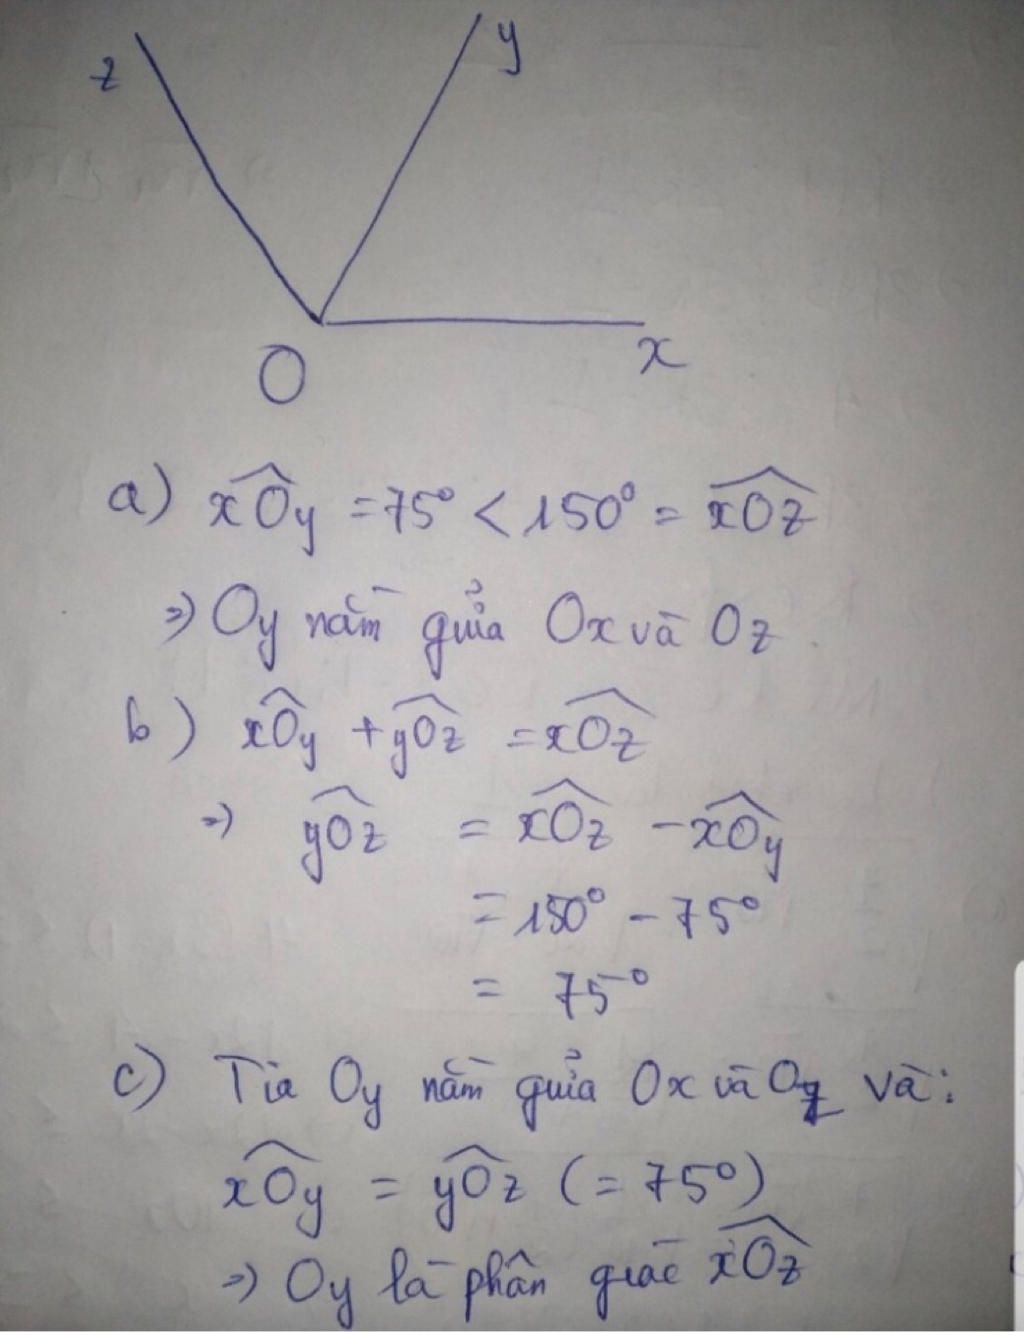 z
y
O
x
a) \widehat{xOy} = 75° < 150° = \widehat{xOz}
=> Oy nằm giữa Ox và Oz.
b) \widehat{xOy} + \widehat{yOz} = \widehat{xOz}
=> \widehat{yOz} = \widehat{xOz} - \widehat{xOy}
= 150° - 75°
= 75°
c) Tia Oy nằm giữa Ox và Oz và:
\widehat{xOy} = \widehat{yOz} (= 75°)
=> Oy là phân giác \widehat{xOz}